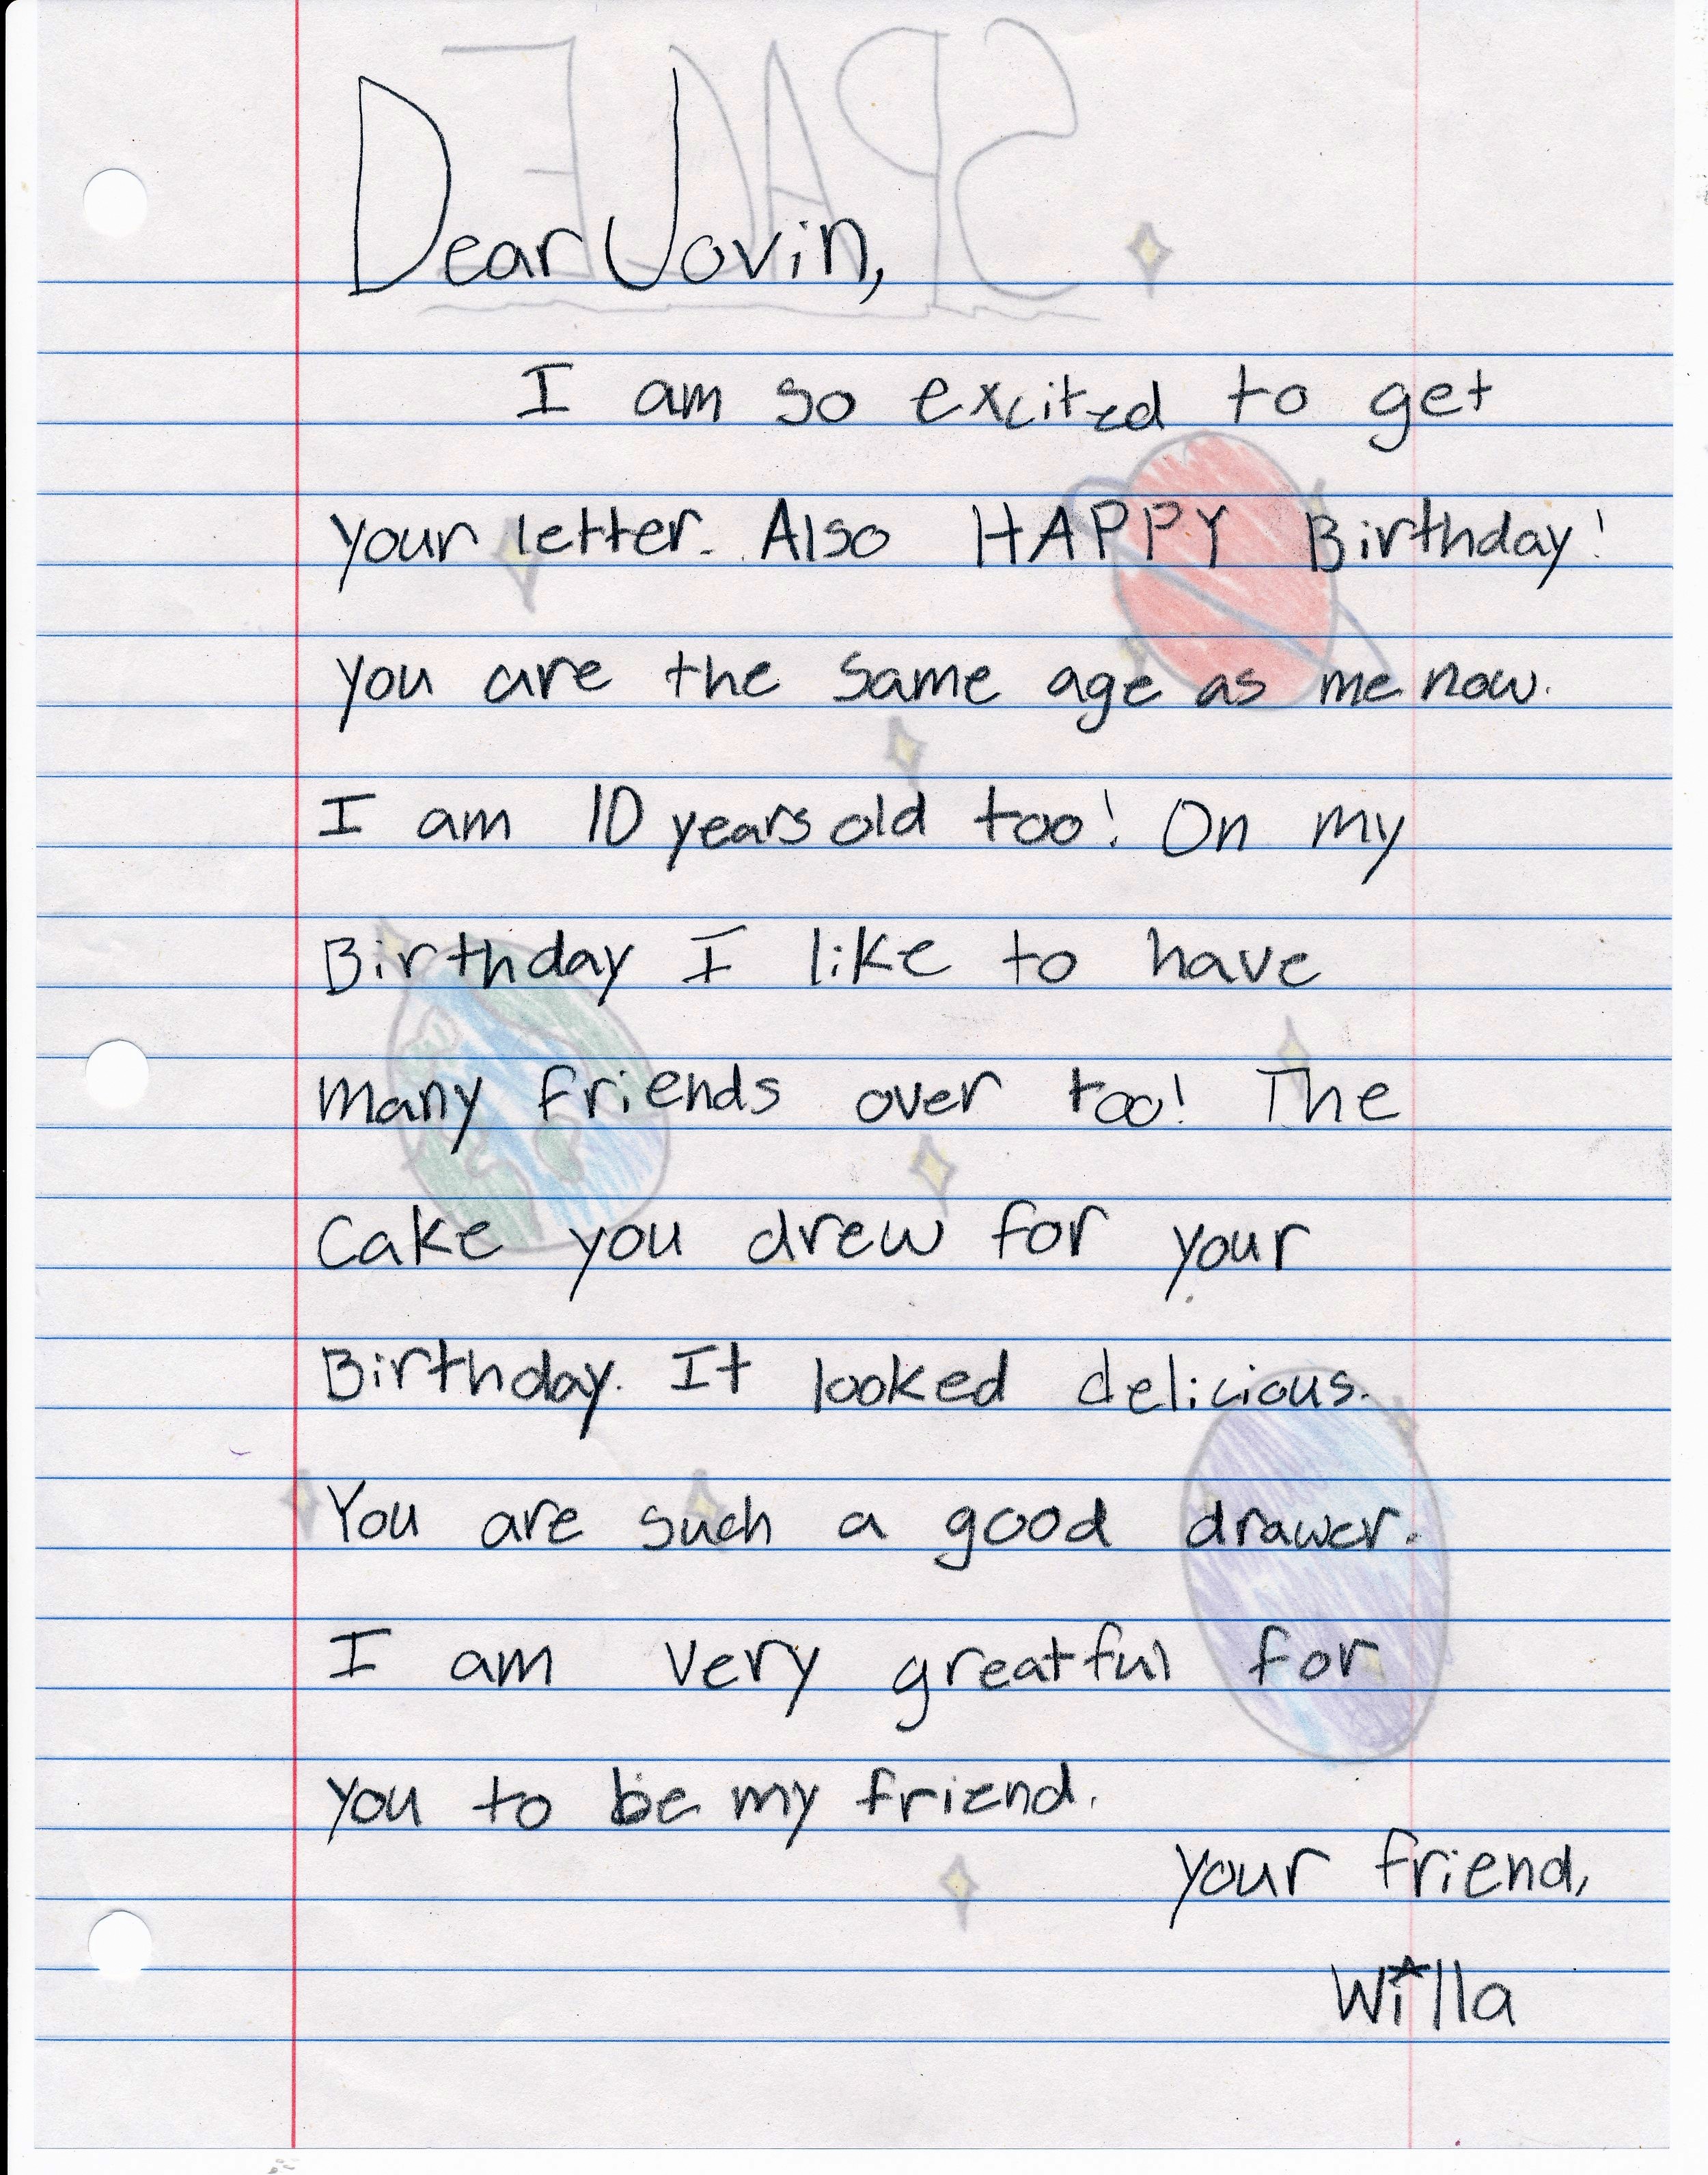 SPACE
Dear Jovin,
I am so excited to get
your letter. Also HAPPY Birthday!
you are the same age as me now.
I am 10 years old too! On my
Birthday I like to have
many friends over too! The
Cake you drew for your
Birthday. It looked delicious.
You are such a good drawer.
I am very greatful for
you to be my friend.
your friend,
Willa